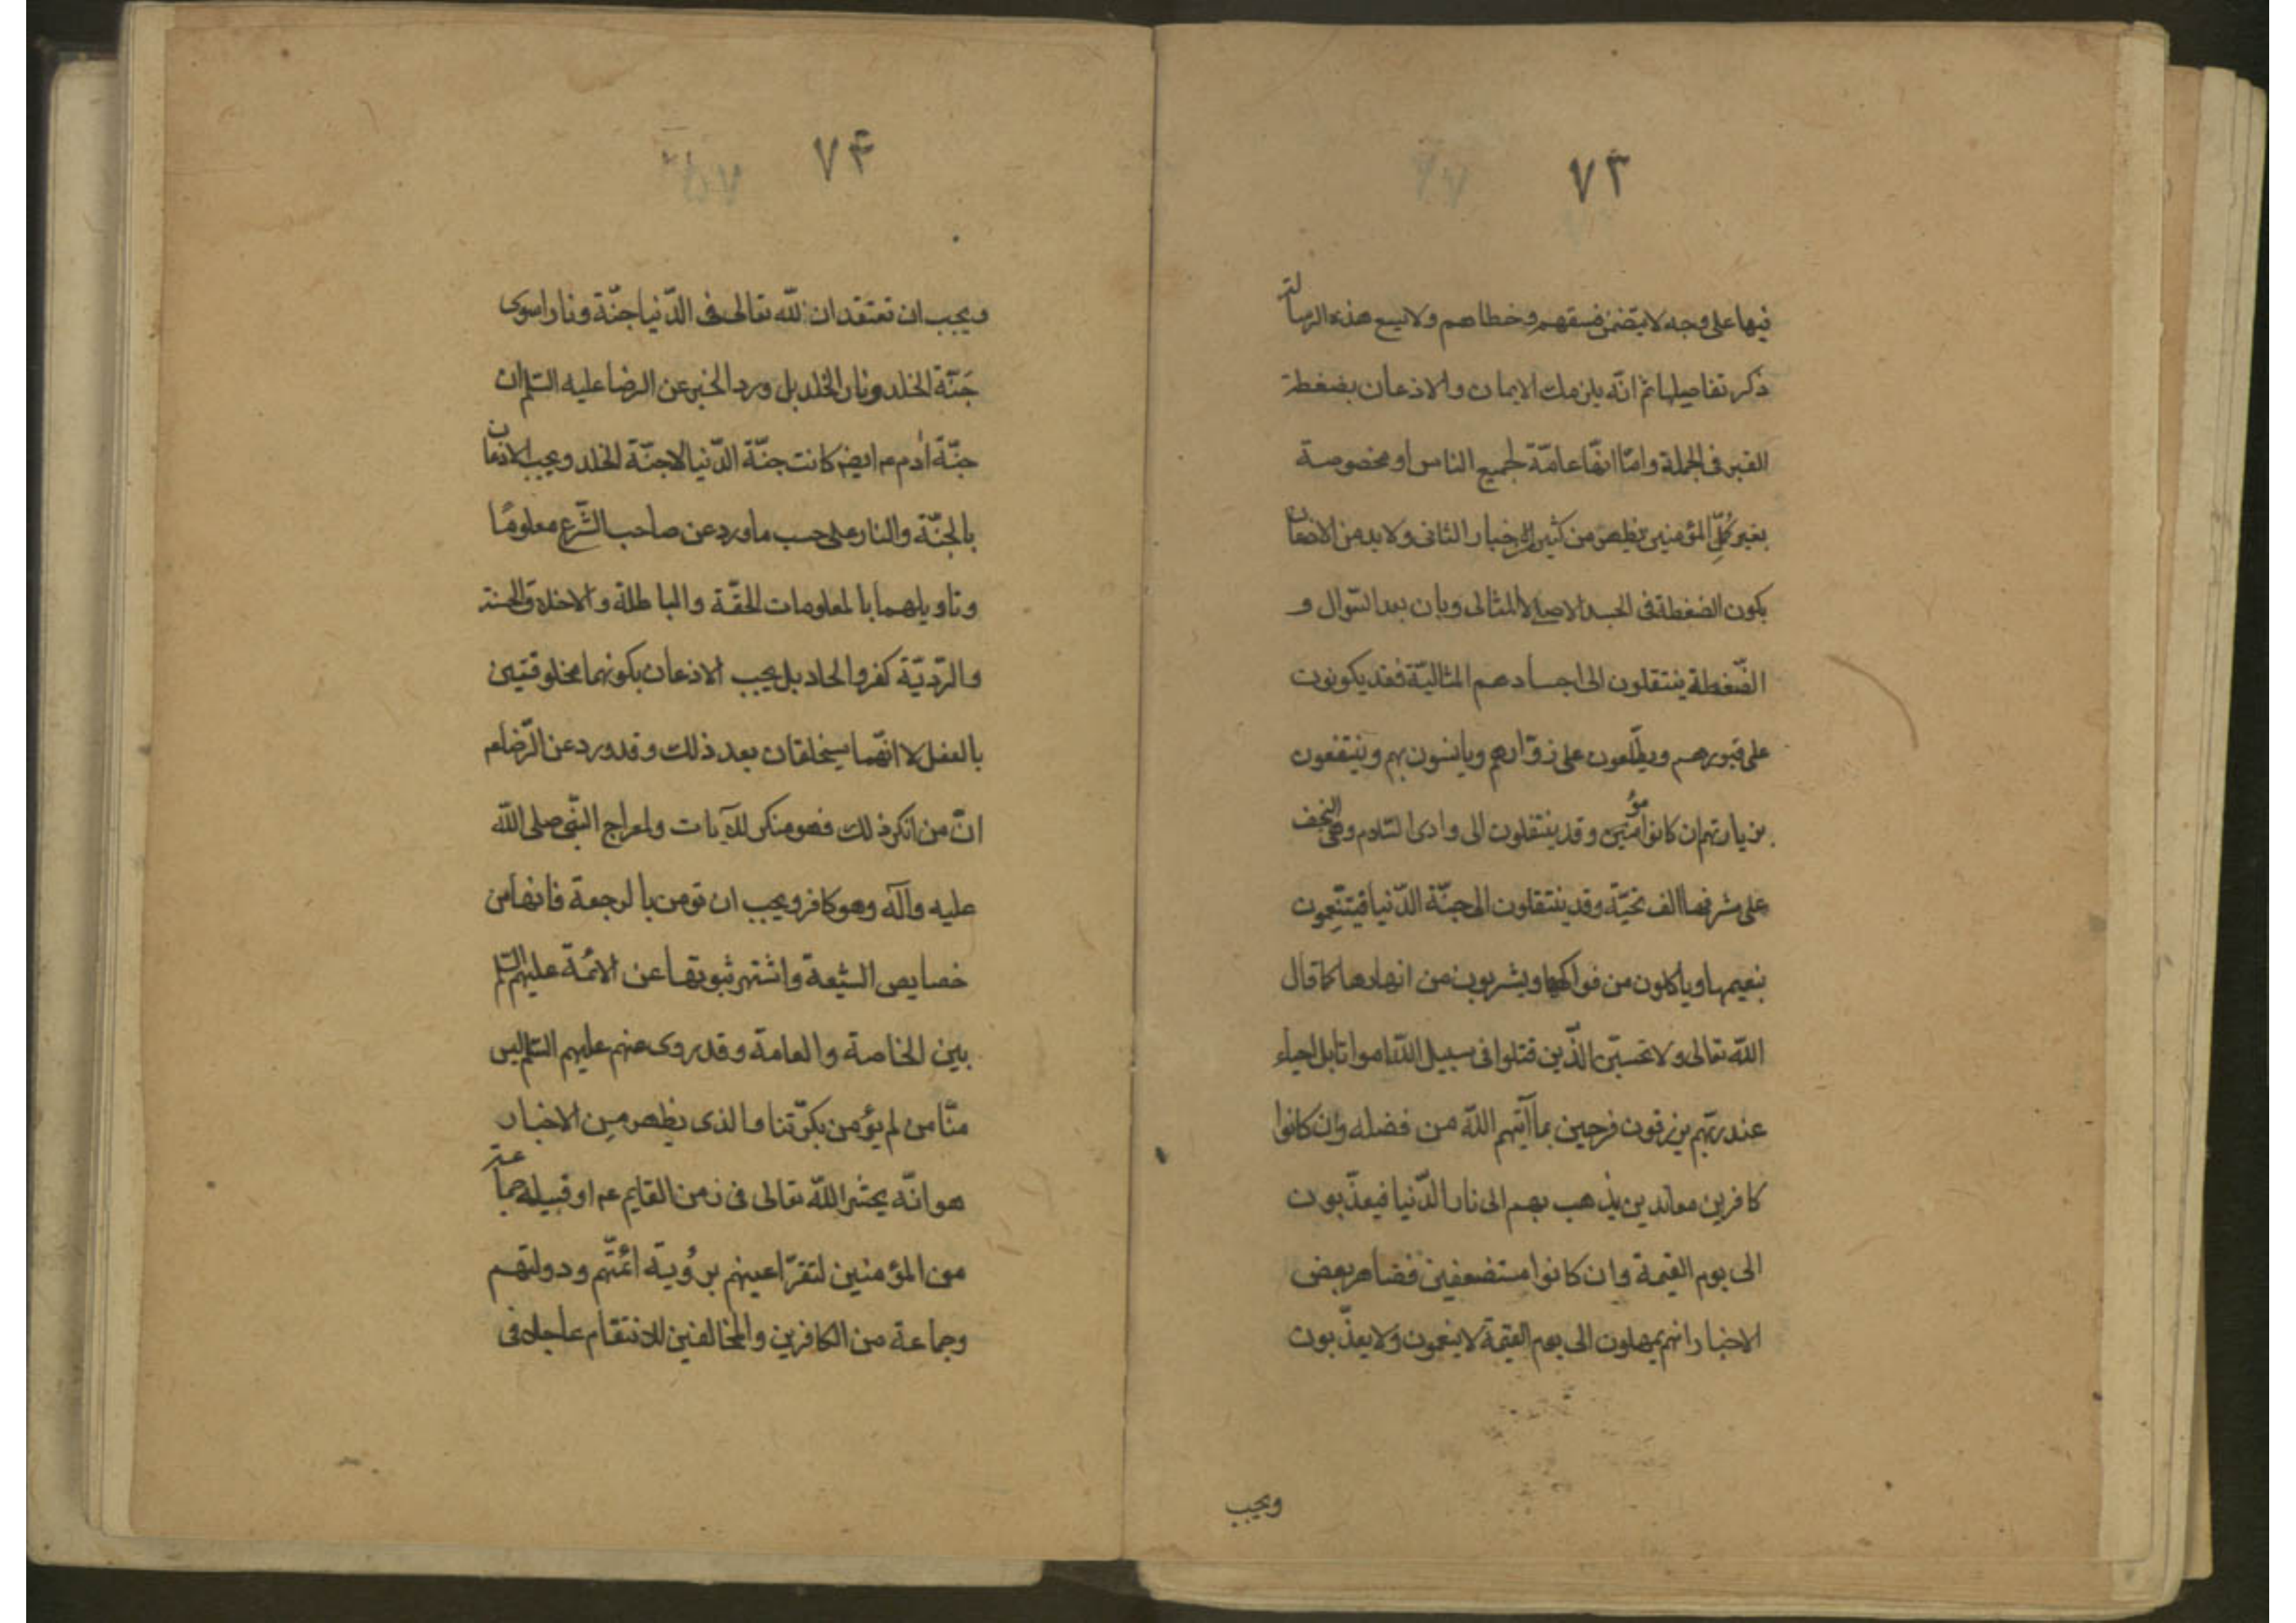 ٧٣
فيها على وجه لا يتضمن فسقهم وخطاهم ولا يسع هذه الرسالة
ذكر تفاصيلها ثم انّه يلزمك الايمان والاذعان بضغطة
القبر فى الجملة وامّا انها عامّة لجميع الناس او مخصوصة
بغير كُمّل المؤمنين يظهر من كثير الاخبار الثانى ولا بد من الاذعان
بكون الضغطة فى الجسد الاصلى لا المثالى وبان بعد السّوال و
الضّغطة ينتقلون الى اجسادهم المثاليّة فقد يكونون
على قبورهم ويطّلعون على زوّارهم ويانسون بهم وينتفعون
بزيارتهم ان كانوا مؤمنين وقد ينتقلون الى وادى السّلام وهى النجف
على مشرفها الف تحيّة وقد ينتقلون الى جنّة الدّنيا فيتنّعمون
بنعيمها وياكلون من فواكهها ويشربون من انهارها كما قال
اللّه تعالى ولا تحسبّن الّذين قتلوا فى سبيل اللّه امواتا بل احياء
عند ربّهم يرزقون فرحين بما آتيهم اللّه من فضله وان كانوا
كافرين معاندين يذهب بهم الى نار الدّنيا فيعذّبون
الى يوم القيمة وان كانوا مستضعفين فظاهر بعض
الاخبار انهم يمهلون الى يوم القيمة لا ينعمون ولا يعذّبون
ويجب
٧۴
ويجب ان تعتقد ان للّه تعالى فى الدّنيا جنّة ونارا سوى
جَنّة الخلد ونار الخلد بل ورد الخبر عن الرضا عليه السّلم ان
جنّة ادم عم ايضم كانت جنّة الدّنيا لا جنّة الخلد ويجب الاذعان
بالجنّة والنار على حسب ما ورد عن صاحب الشّرع معلومًا
وتاويلهما بالمعلومات الحقّة والباطلة والاخلاق الحسنة
والرّديّة كفر والحاد بل يجب الاذعان بكونهما مخلوقتين
بالفعل لا انّهما سيخلقان بعد ذلك وقد ورد عن الرّضا عم
انّ من انكر ذلك فهو منكر للآيات ولمعراج النّبى صلى اللّه
عليه وآله وهو كافر ويجب ان تومن بالرجعة فانها من
خصايص الشيعة واشتهر ثبوتها عن الائمّة عليهم السّلم
بين الخاصة والعامة وقد روى عنهم عليهم السّلم ليس
منّا من لم يؤمن بكرّتنا والذى يظهر من الاخبار
هو انّه يحشر اللّه تعالى فى زمن القايم عم او قبيله جماعة
من المؤمنين لتقرّ اعينهم برؤية ائمّتهم ودولتهم
وجماعة من الكافرين والمخالفين للانتقام عاجلا فى